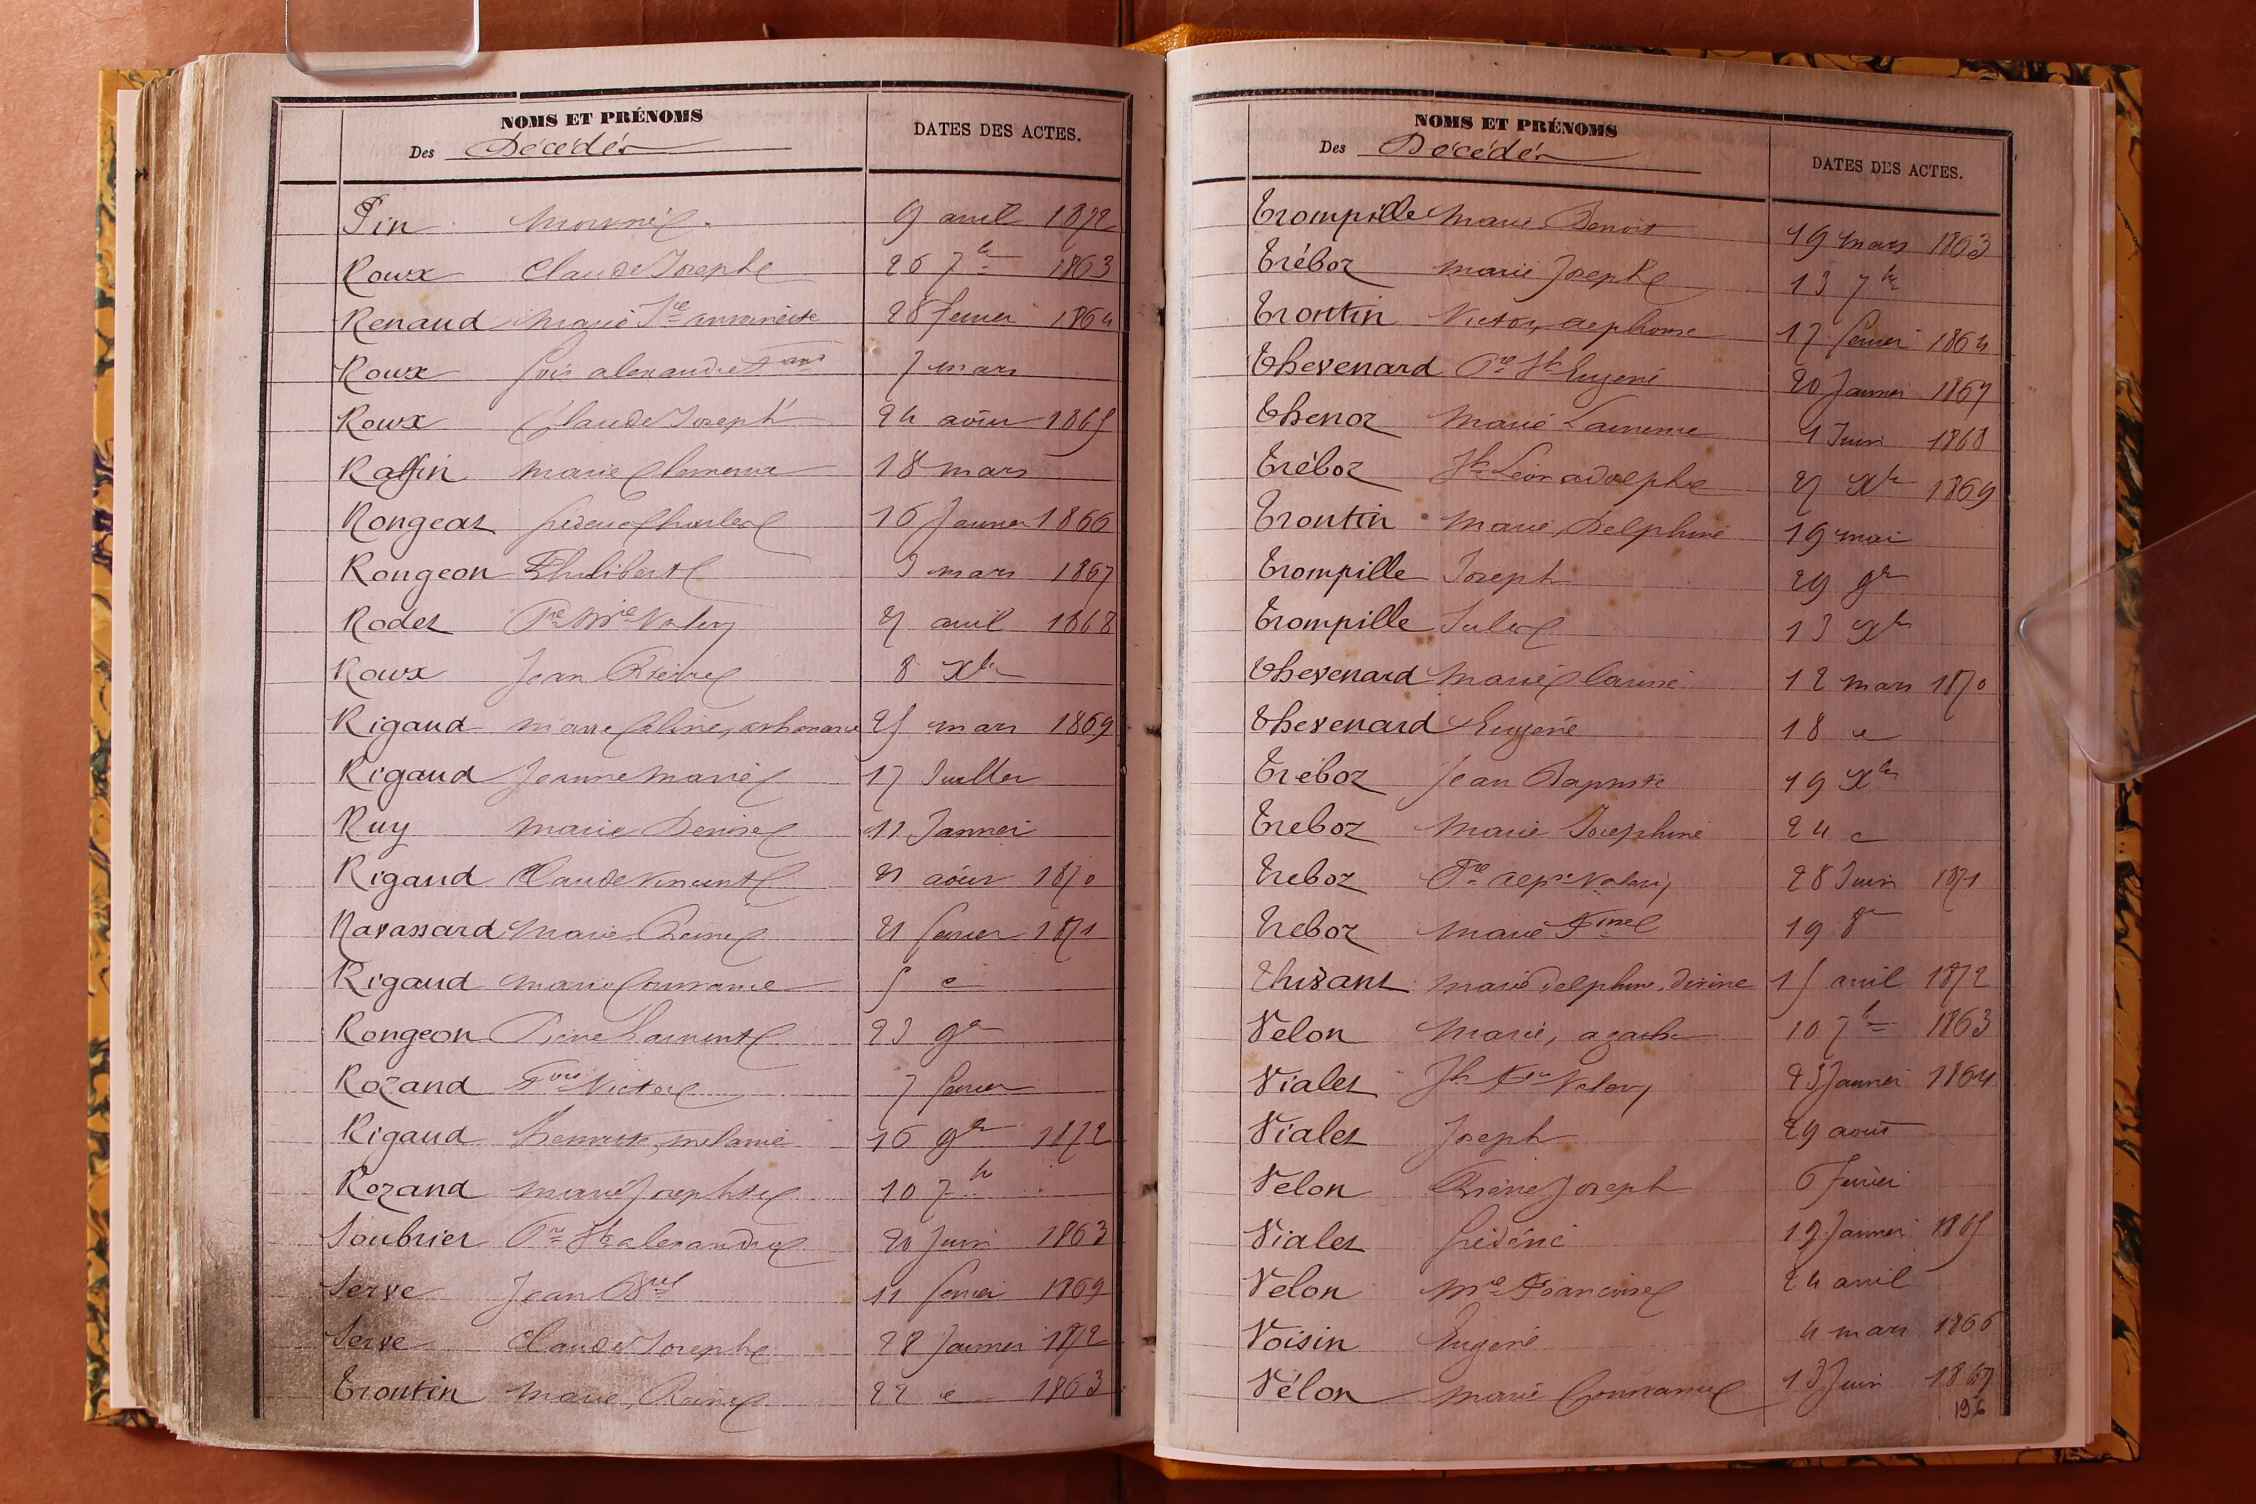 NOMS ET PRÉNOMS
Des Décédés
DATES DES ACTES.
Pin 9 avril 1872
Roux Claude Joseph 26 7bre 1863
Renaud Marie Antoinette 28 fevrier 1864
Roux alexandre 7 mars
Roux Claude Joseph 24 août 1865
Raffin Marie Clemence 18 mars
Rongeat Frederic Charles 16 Janvier 1866
Rongeon Philibert 9 mars 1867
Rodet Pre Mie Valery 27 avril 1868
Roux Jean Pierre 8 Xbre
Rigaud Marie Celine, 25 mars 1869
Rigaud Jeanne Marie 17 Juillet
Ruy Marie Denise 11 Janvier
Rigaud Claude Vincent 21 août 1870
Ravassard Marie Reine 21 fevrier 1871
Rigaud Marie Constance 5 e
Rongeon Pierre Laurent 23 9bre
Rozand Fois Victor 7 fevrier
Rigaud melanie 16 9bre 1872
Rozand Marie Josephte 10 7bre
Soubrier Pre Jh alexandre 20 Juin 1863
Serve Jean 11 fevrier 1869
Serve Claude Joseph 28 Janvier 1872
Trontin Marie, Reine 22 e 1863
NOMS ET PRÉNOMS
Des Décédés
DATES DES ACTES.
Trompille Marie Benoit 19 mars 1863
Tréboz Marie Joseph 13 7bre
Trontin Victor, alphonse 17 fevrier 1864
Thevenard Pre Jh Eugene 20 Janvier 1867
Thenoz Marie Laurence 1 Juin 1868
Tréboz Jh Léon adolphe 27 Xbre 1869
Trontin Marie, Delphine 19 mai
Trompille Joseph 29 9bre
Trompille Jules 13 Xbre
Thevenard Marie Clarisse 12 mars 1870
Thevenard Eugene 18 e
Tréboz Jean Baptiste 19 Xbre
Treboz Marie Josephine 24 e
Treboz Valery 28 Juin 1871
Treboz Marie 19 8bre
Thivant Marie Delphine, Divine 15 avril 1872
Velon Marie, agathe 10 7bre 1863
Vialet Jh Valery 23 Janvier 1864
Vialet Joseph 29 août
Velon Pierre Joseph 6 fevrier
Vialet Frédéric 12 Janvier 1865
Velon Mie Francoise 24 avril
Voisin Eugene 4 mars 1866
Vélon Marie Constance 13 Juin 1867
196